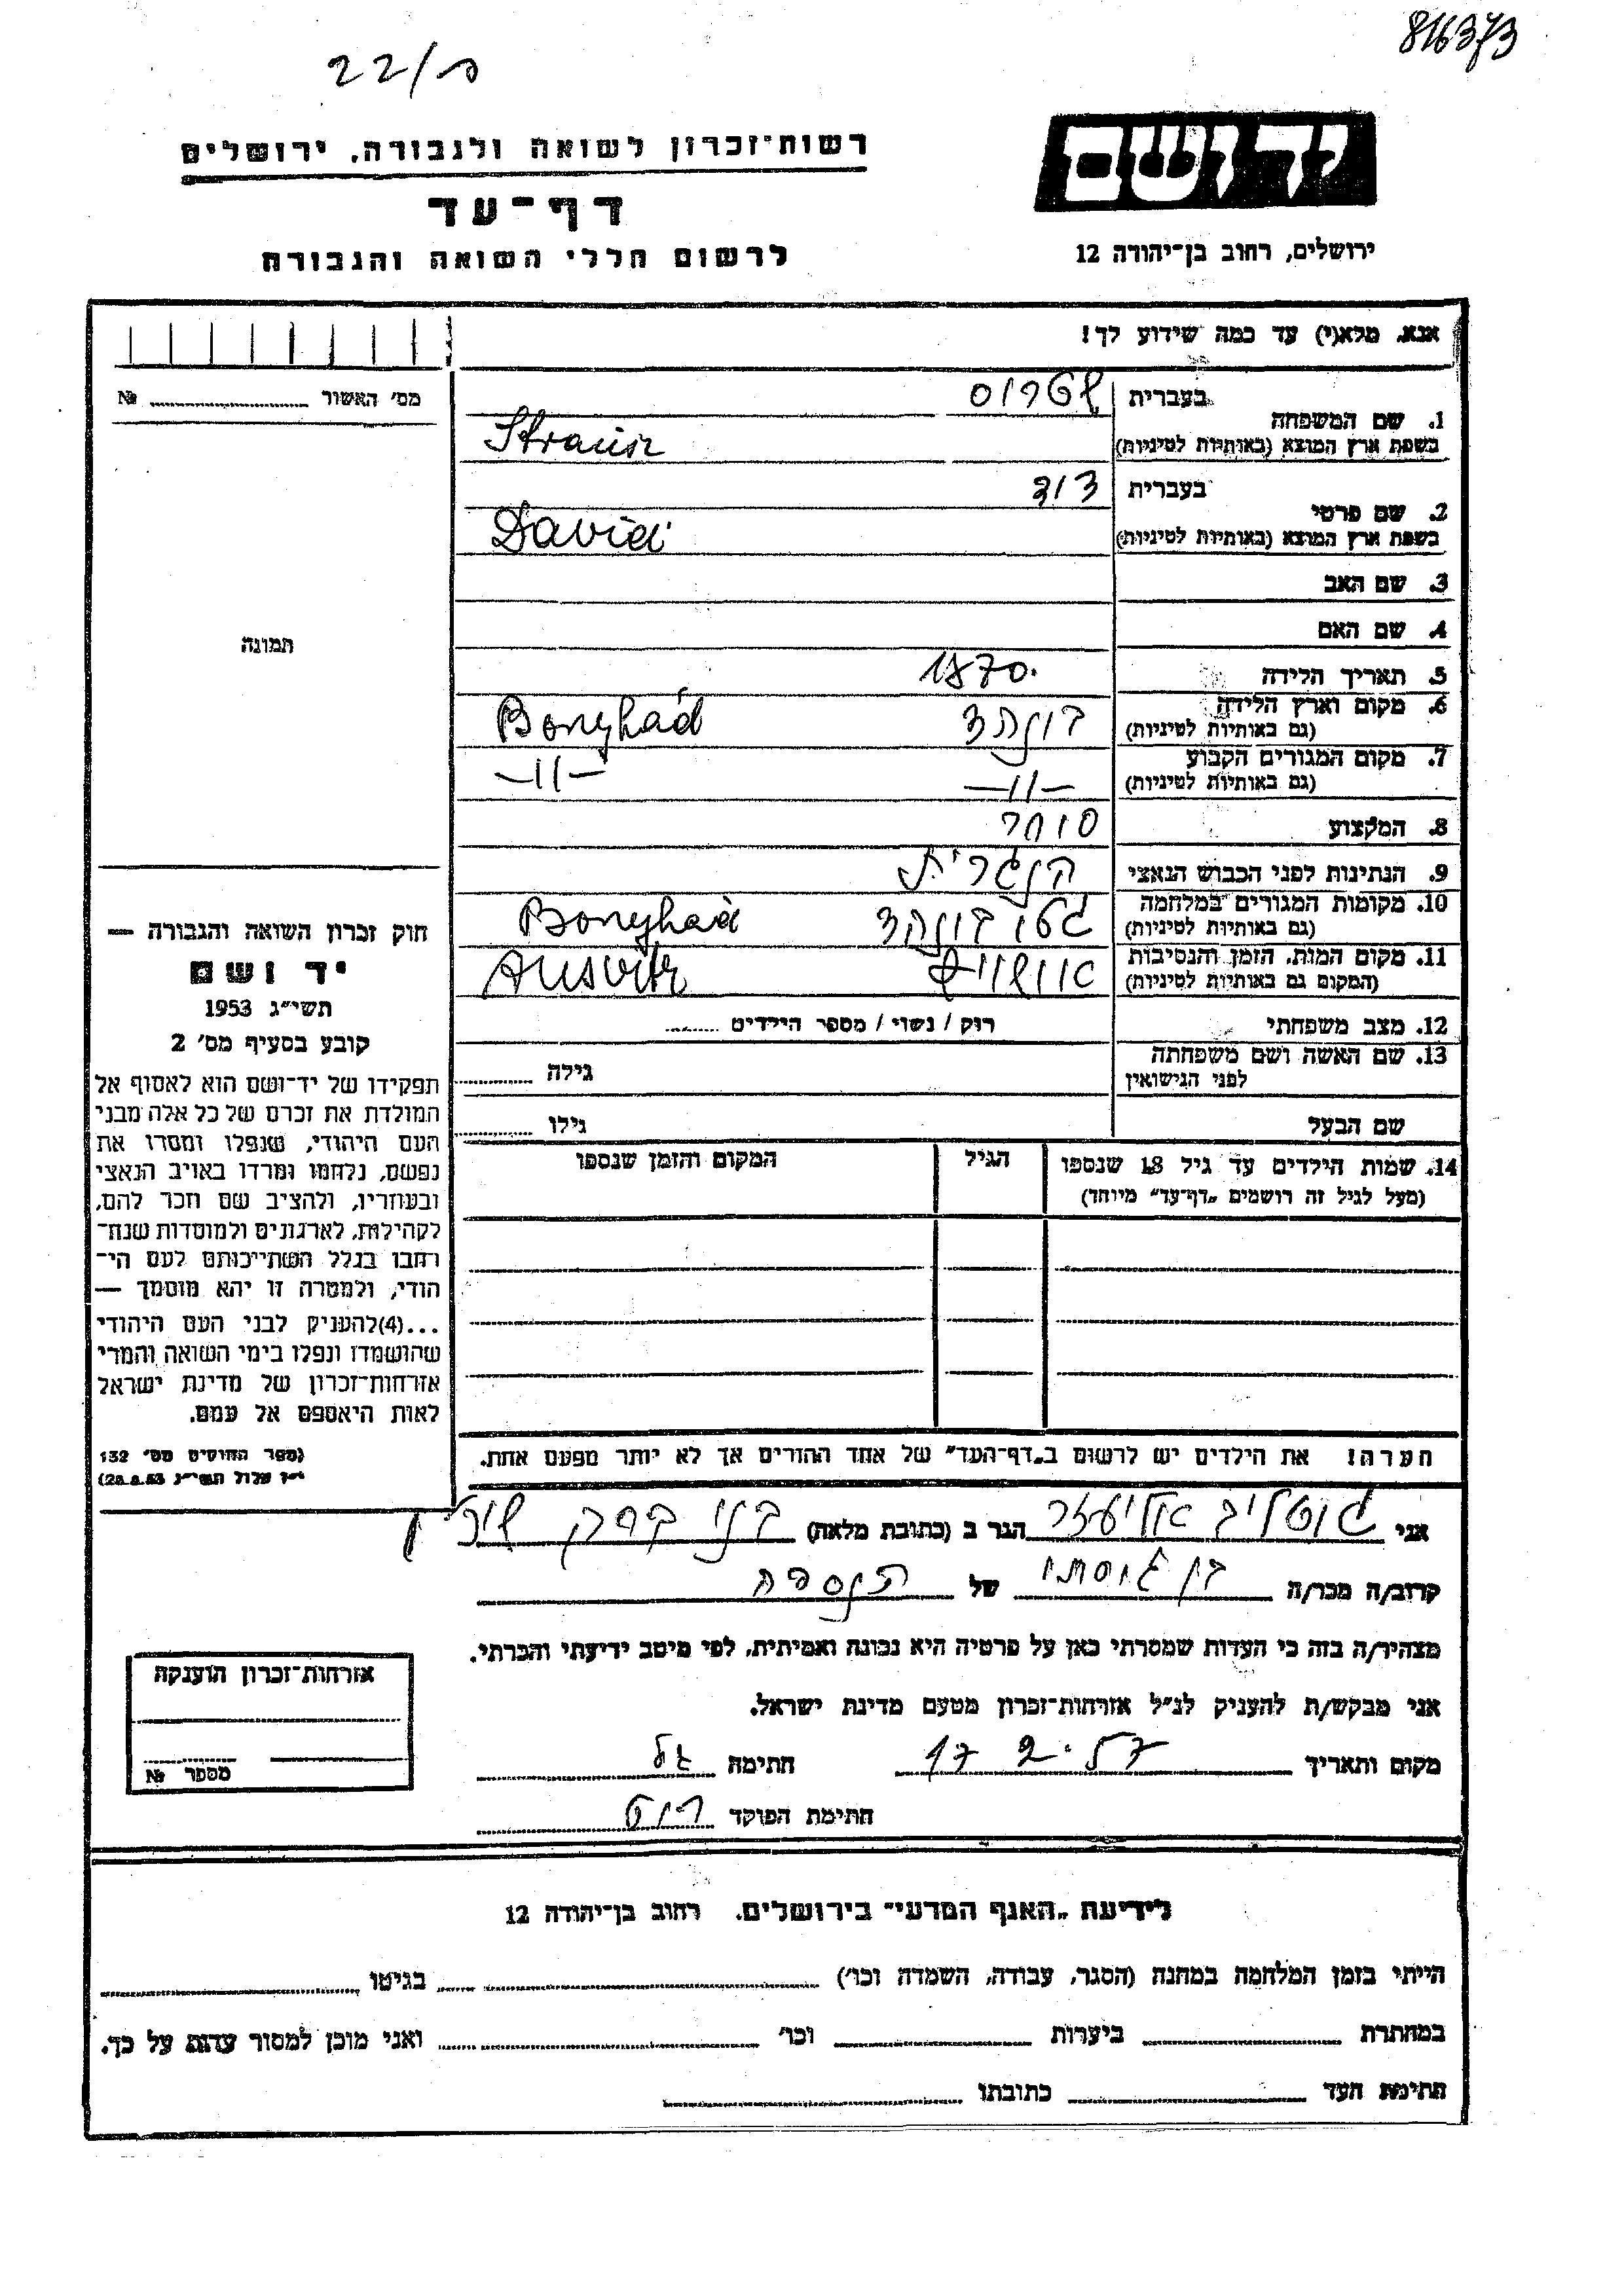 816373
22/ס
רשות־זכרון לשואה ולגבורה, ירושלים
יד ושם
דף־עד
ירושלים, רחוב בן־יהודה 12
לרשום חללי השואה והגבורה
אנא, מלא(י) עד כמה שידוע לך!
מס׳ האשור № 
1. שם המשפחה
בעברית שטרוס
בשפת ארץ המוצא (באותיות לטיניות) Strausz
2. שם פרטי
בעברית דוד
בשפת ארץ המוצא (באותיות לטיניות) David
3. שם האב
4. שם האם
תמונה
5. תאריך הלידה 1870.
6. מקום וארץ הלידה בונהד Bonyhád
(גם באותיות לטיניות)
7. מקום המגורים הקבוע —11— —11—
(גם באותיות לטיניות)
8. המקצוע סוחר
9. הנתינות לפני הכבוש הנאצי הונגרית
10. מקומות המגורים במלחמה גטו בונהד Bonyhád
(גם באותיות לטיניות)
11. מקום המות, הזמן והנסיבות אושויץ Ausvitz
(המקום גם באותיות לטיניות)
12. מצב משפחתי רוק / נשוי / מספר הילדים
13. שם האשה ושם משפחתה גילה
לפני הנישואין
שם הבעל גילו
14. שמות הילדים עד גיל 18 שנספו הגיל המקום והזמן שנספו
(מעל לגיל זה רושמים „דף־עד״ מיוחד)
הערה! את הילדים יש לרשום ב„דף־העד״ של אחד ההורים אך לא יותר מפעם אחת.
חוק זכרון השואה והגבורה —
יד ושם
תשי״ג 1953
קובע בסעיף מס׳ 2
תפקידו של יד־ושם הוא לאסוף אל
המולדת את זכרם של כל אלה מבני
העם היהודי, שנפלו ומסרו את
נפשם, נלחמו ומרדו באויב הנאצי
ובעוזריו, ולהציב שם וזכר להם,
לקהילות, לארגונים ולמוסדות שנח־
רחבו בגלל השתייכותם לעם הי־
הודי, ולמטרה זו יהא מוסמך —
...(4)להעניק לבני העם היהודי
שהושמדו ונפלו בימי השואה והמרי
אזרחות־זכרון של מדינת ישראל
לאות היאספם אל עמם.
(ספר החוקים מס׳ 132
י״ז אלול תשי״ג 28.8.53)
אני גוטליב אליעזר הגר ב (כתובת מלאה) בני ברק
קרוב/ה מכר/ה בן גיסתו של הנספה
מצהיר/ה בזה כי העדות שמסרתי כאן על פרטיה היא נכונה ואמיתית, לפי מיטב ידיעתי והכרתי.
אני מבקש/ת להעניק לנ״ל אזרחות־זכרון מטעם מדינת ישראל.
מקום ותאריך 17 2. 57 חתימה גל
חתימת הפוקד
אזרחות־זכרון הוענקה
מספר №
לידיעת „האגף המדעי״ בירושלים, רחוב בן־יהודה 12
הייתי בזמן המלחמה במחנה (הסגר, עבודה, השמדה וכו׳) בגיטו
במחתרת ביערות וכו׳ ואני מוכן למסור עדות על כך.
חתימת העד כתובתו